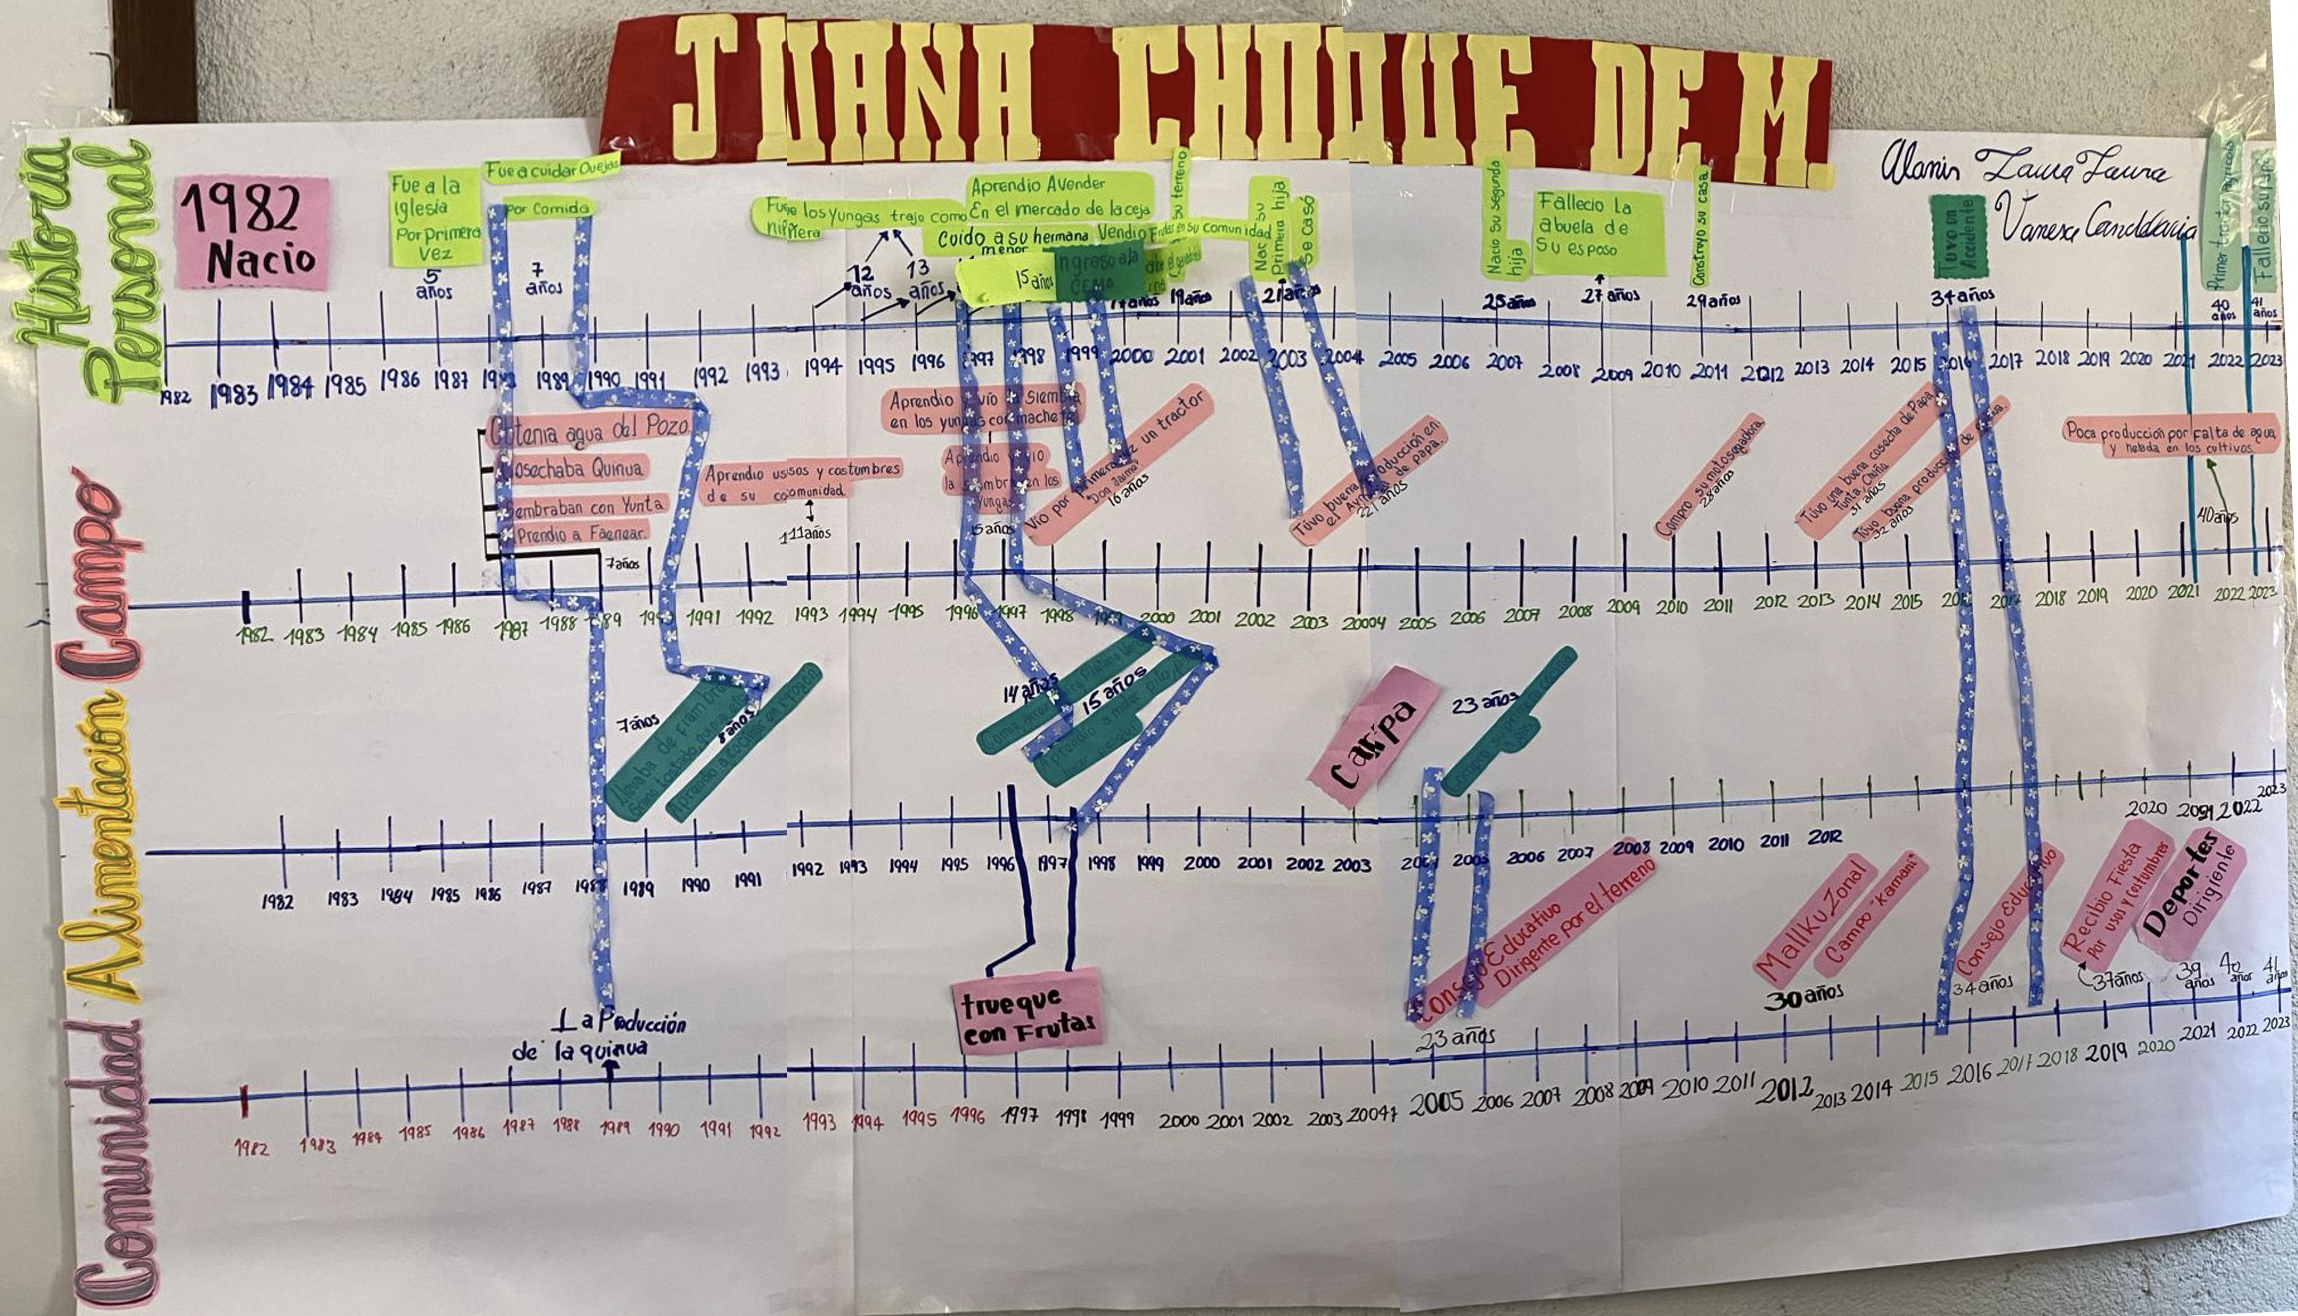 JUANA CHOQUE DE M.
Historia
Personal
Alanis Laura Laura
Vanesa Candelaria
1982
Nacio
Fue a la
iglesia
Por primera
vez
5
años
Fue a cuidar Ovejas
por Comida
7
años
Fue los Yungas trajo como
niñera
12
años
13
años
Aprendio A Vender
En el mercado de la ceja
Cuido a su hermana
menor
Vendio Frutas en su comunidad
15 años
Ingreso a la
CEMA
su terreno
19 años
Primera hija
Se casó
21 años
Nacio su segunda
hija
25 años
Fallecio La
abuela de
Su esposo
27 años
Construyo su casa
29 años
Tuvo un
Accidente
34 años
40
años
Fallecio su Papá
41
años
1982 1983 1984 1985 1986 1987 1989 1990 1991 1992 1993 1994 1995 1996 1997 1998 1999 2000 2001 2002 2003 2004 2005 2006 2007 2008 2009 2010 2011 2012 2013 2014 2015 2016 2017 2018 2019 2020 2021 2022 2023
Campo
Obtenia agua del Pozo
Cosechaba Quinua
Sembraban con Yunta
Prendio a Faenear
7 años
Aprendio ususos y costumbres
de su coomunidad
11 años
Aprendio y vío la Siembra
en los yungas con machete
Aprendio y vio
la siembra en los
Yungas
15 años
Vio por primera vez un tractor
"Don Jaime"
16 años
Tuvo buena Producción en
de papa.
21 años
Compro su motosegadora
28 años
Tuvo una buena cosecha de Papa,
Tunta, Chuño
31 años
Tuvo buena produccion de
32 años
Poca producción por falta de agua
y helada en los cultivos
40 años
1982 1983 1984 1985 1986 1987 1988 1989 1990 1991 1992 1993 1994 1995 1996 1997 1998 1999 2000 2001 2002 2003 20004 2005 2006 2007 2008 2009 2010 2011 2012 2013 2014 2015 2016 2017 2018 2019 2020 2021 2022 2023
Alimentación
7 años
8 años
Aprendio a cocinar
14 años
15 años
Carpa
23 años
1982 1983 1984 1985 1986 1987 1988 1989 1990 1991 1992 1993 1994 1995 1996 1997 1998 1999 2000 2001 2002 2003 2004 2005 2006 2007 2008 2009 2010 2011 2012 2020 2021 2022 2023
Comunidad
La Producción
de la quinua
trueque
con Frutas
Consejo Educativo
Dirigente por el terreno
23 años
Mallku Zonal
Campo "Kamani"
30 años
Consejo Educativo
34 años
Recibio Fiesta
Por usos y costumbres
37 años
Deportes
Dirigiente
39
años
40
años
41
años
1982 1983 1984 1985 1986 1987 1988 1989 1990 1991 1992 1993 1994 1995 1996 1997 1998 1999 2000 2001 2002 2003 2004 2005 2006 2007 2008 2009 2010 2011 2012 2013 2014 2015 2016 2017 2018 2019 2020 2021 2022 2023